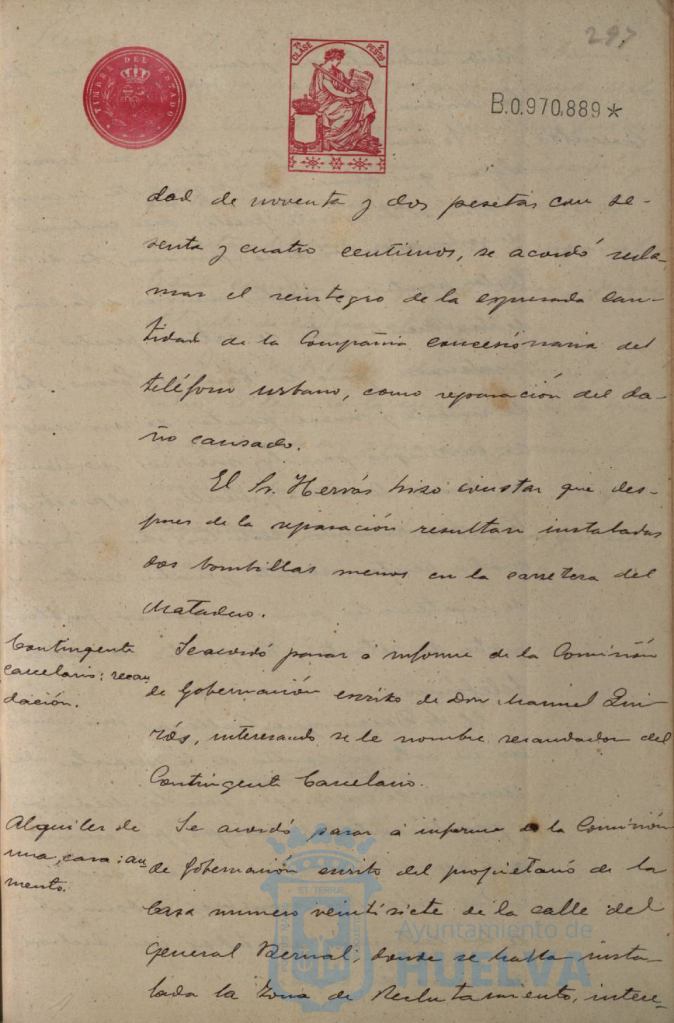 297
TIMBRE DEL ESTADO
7ª CLASE 2 PESTS
B.0.970.889*
dad de noventa y dos pesetas con se-
senta y cuatro centimos, se acordó recla-
mar el reintegro de la expresada can-
tidad de la Compañia concesionaria del
teléfono urbano, como reparación del da-
ño causado.
El Sr. Hervás hizo constar que des-
pues de la reparación resultan instaladas
dos bombillas menos en la carretera del
Matadero.
Contingente
carcelario: recau
dación.
Se acordó pasar á informe de la Comisión
de Gobernación escrito de Don Manuel Qui-
rós, interesando se le nombre recaudador del
Contingente Carcelario.
Alquiler de
una casa: au
mento.
Se acordó pasar á informe de la Comisión
de Gobernación escrito del propietario de la
Casa numero veintisiete de la calle del
General Bernal, donde se halla insta-
lada la Zona de Reclutamiento, intere-
Ayuntamiento de
HUELVA